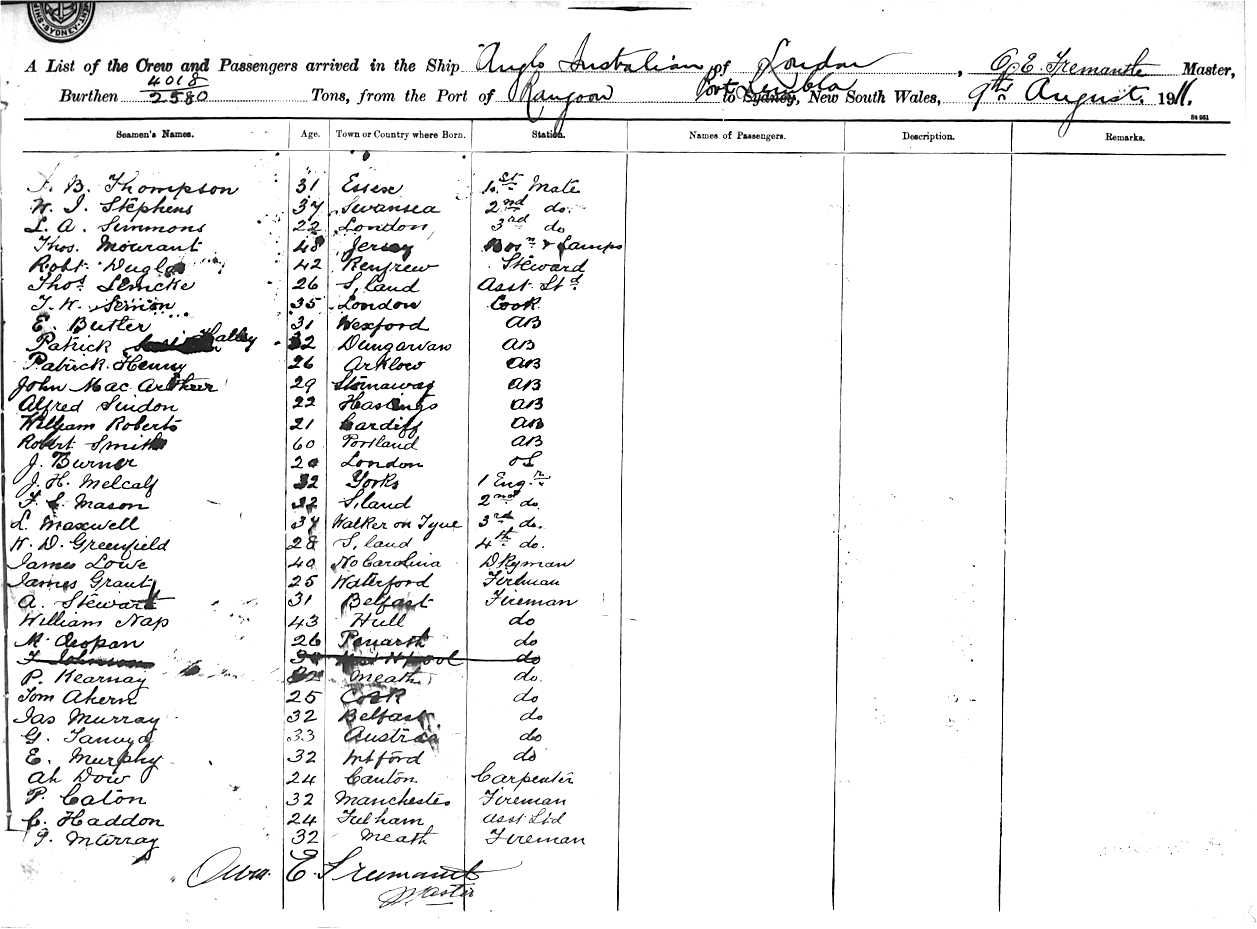 SYDNEY
A List of the Crew and Passengers arrived in the Ship Anglo Australian of London, O. E. Fremantle Master,
Burthen 4018 / 2580 Tons, from the Port of Rangoon to Sydney, Port Kembla New South Wales, 9th August 1911.
84 951
Seamen's Names. Age. Town or Country where Born. Station. Names of Passengers. Description. Remarks.
B. Thompson 31 Essex 1st Mate
W. J. Stephens 37 Swansea 2nd do.
L. A. Simmons 22 London 3rd do
Thos. Mourant 48 Jersey Bosn & Lamps
Robt 42 Renfrew Steward
Thos Lemcke 26 S, land Asst Std
35 London Cook
E. Butler 31 Wexford AB
Patrick Halley 32 Dungarvan AB
Patrick Henny 26 Arklow AB
John Mac Artheur 29 Stornaway AB
Alfred Sindon 22 Hastings AB
William Roberts 21 Cardiff AB
Robert Smith 60 Portland AB
J. Burner 20 London OS
J. H. Metcalf 32 Yorks 1 Engr
F. Mason 32 S, land 2nd do.
L. Maxwell 37 Walker on Tyne 3rd do.
W. D. Greenfield 28 S, land 4th do.
James Lowe 40 No Carolina Dkyman
James Grant 25 Waterford Fireman
A. Stewart 31 Belfast Fireman
William Nap 43 Hull do
M. 26 Penarth do
F Johnson do
P. Kearnay 32 Meath do.
Tom Ahern 25 Cork do
Jas Murray 32 Belfast do
G. 33 Austria do
E. Murphy 32 do
Ah Dow 24 Canton Carpenter
P. Caton 32 Manchester Fireman
C. Haddon 24 Fulham asst Std
J. Murray 32 Meath Fireman
Owen E. Fremantle
Master